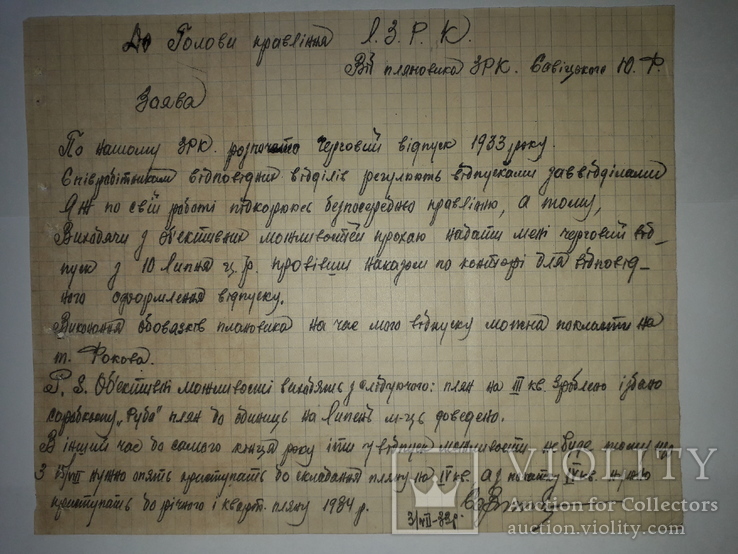 До Голови правління Л.З.Р.К.
Від плановика ЗРК. Савіцького Ю.Ф.
Заява
По нашому ЗРК. розпочато черговий відпуск 1933 року.
Співробітникам відповідних відділів регулюють відпусками заввідділами
Я ж по свій роботі підкорююсь безпосередньо правлінню, а тому,
Виходячи з объективних можливостей прохаю надати мені черговий від-
пуск з 10 Липня ц.р. провівши наказом по конторі для відповід-
ного оформлення відпуску.
Виконання обовязків плановика на час мого відпуску можна покласти на
т. Фокова.
P.S. Обективні можливості виходять з слідуючого: план на III кв. зроблено
"Руба" план до одиниць на Липень м-ць доведено.
В інший час до самого кінця року іти у відпуск можливости не буде
з нужно опять приступать до складання пляну на IV кв. а з
приступать до річного і кварт. пляну 1934 р.
VIOLITY
Auction for Collectors
auction.violity.com